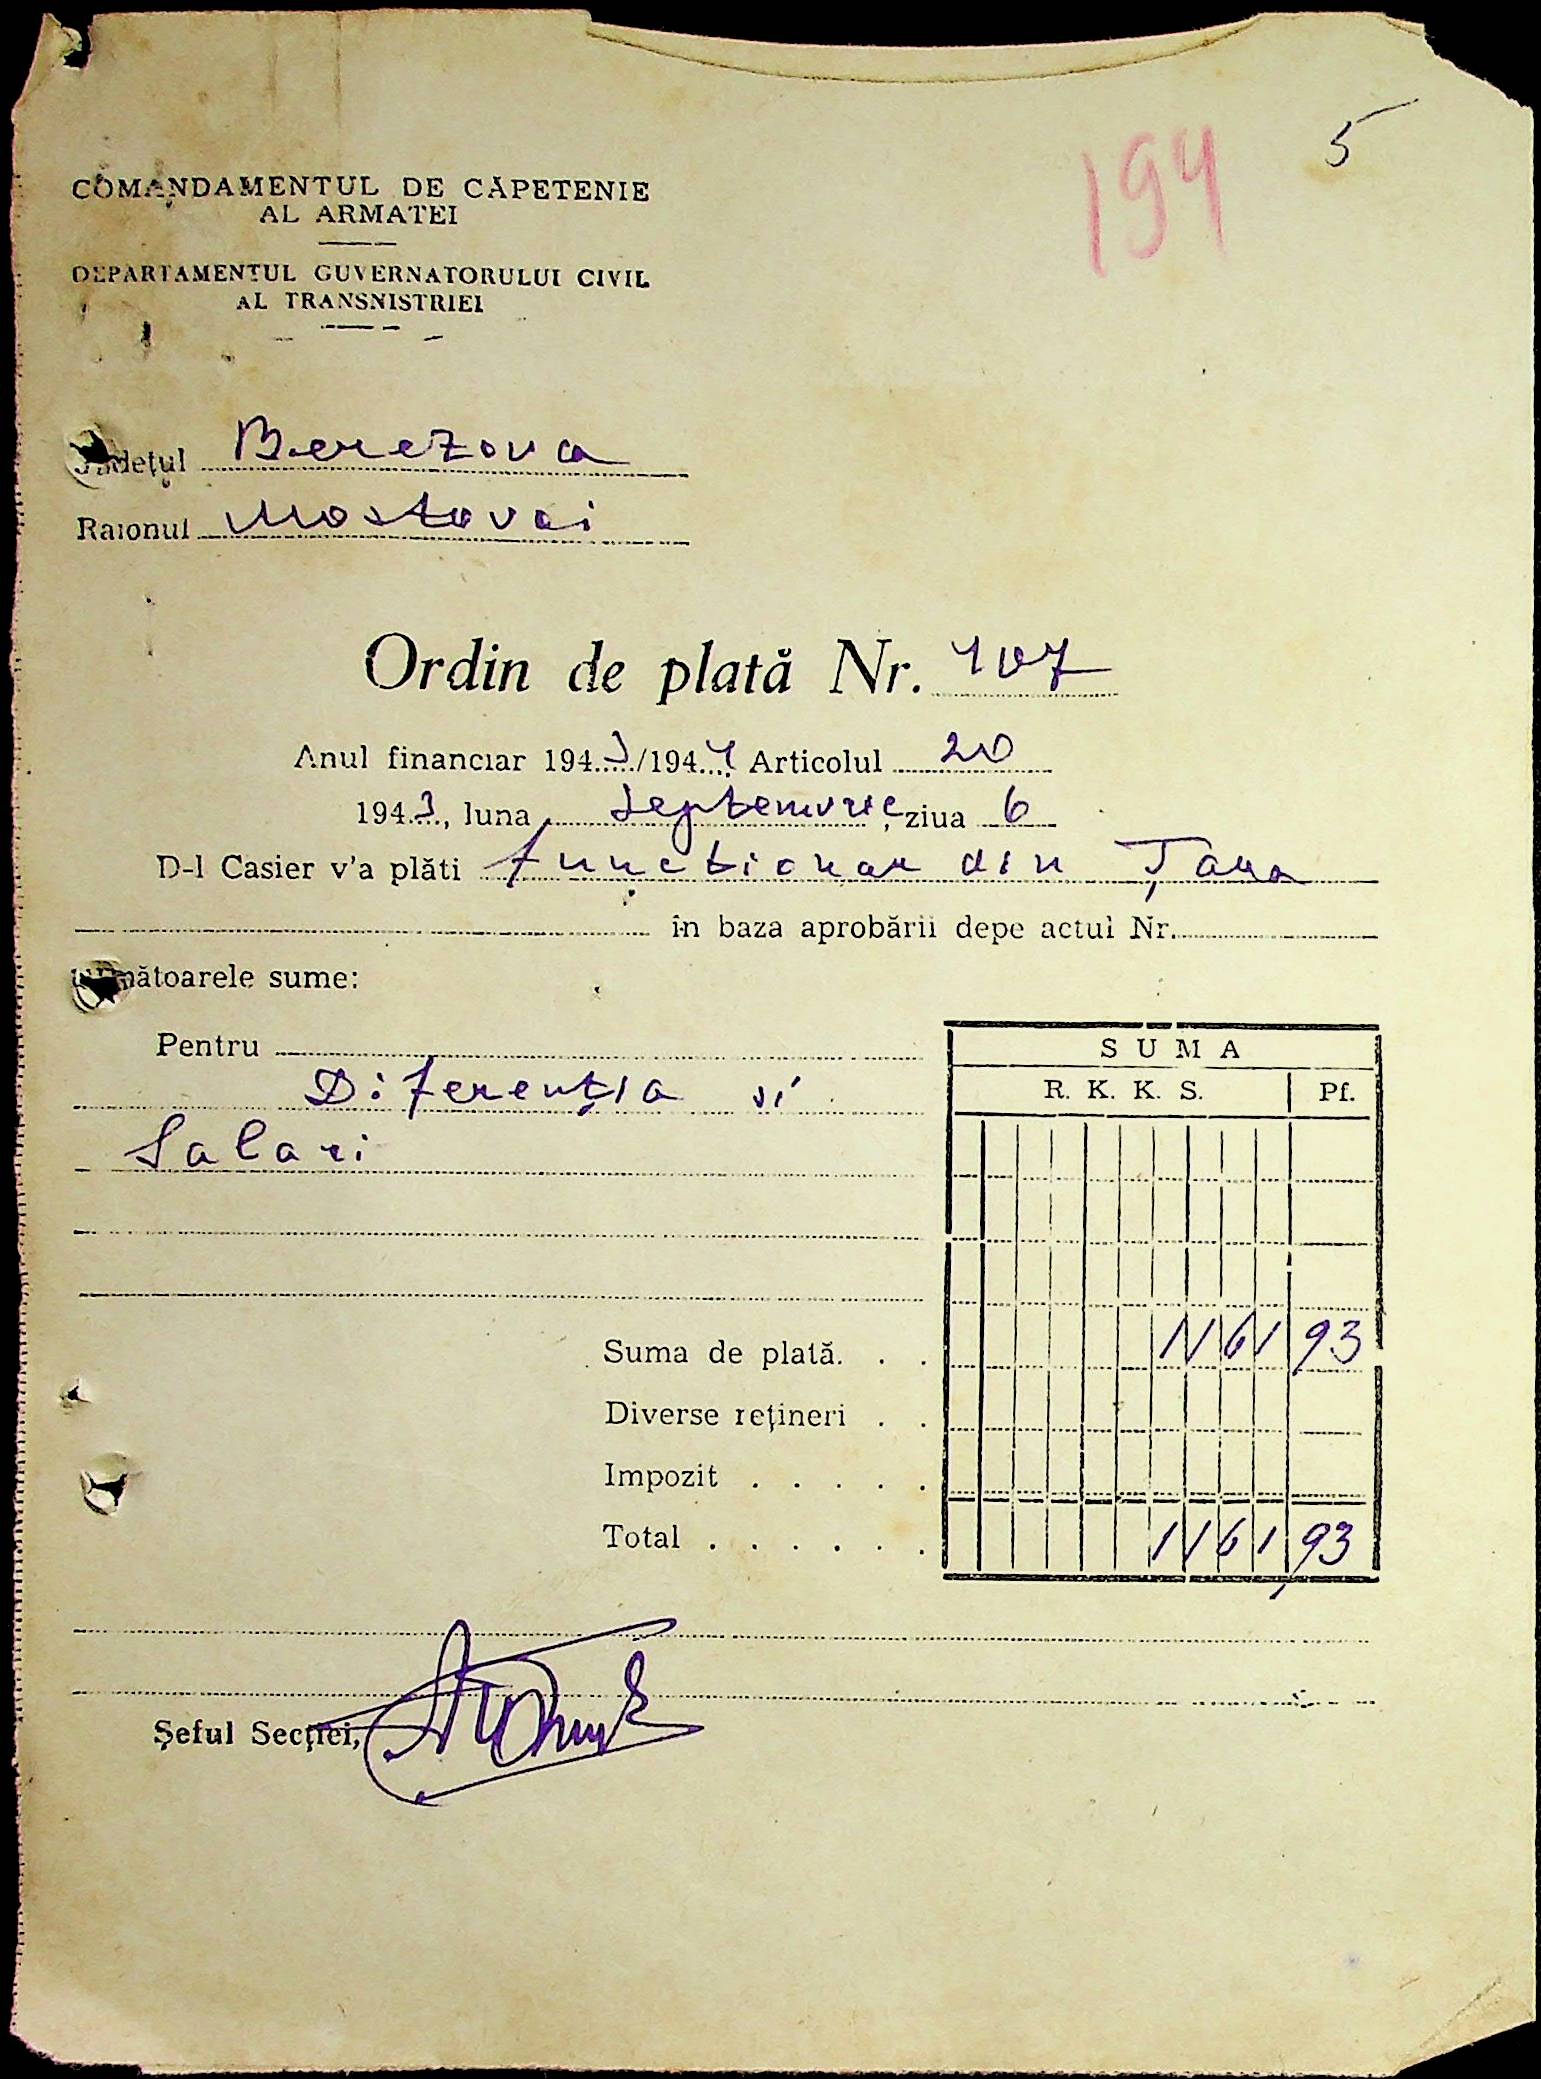 5
194
COMANDAMENTUL DE CĂPETENIE
AL ARMATEI
DEPARTAMENTUL GUVERNATORULUI CIVIL
AL TRANSNISTRIEI
Județul Berezova
Raionul Mostovoi
Ordin de plată Nr. 107
Anul financiar 1943/1944 Articolul 20
1943, luna Septemvrie, ziua 6
D-l Casier v'a plăti functionar din Țara
în baza aprobării depe actul Nr.
următoarele sume:
Pentru
Diferenția si
Salari
SUMA
R. K. K. S. Pf.
Suma de plată. . . 1161 93
Diverse rețineri . .
Impozit . . . . .
Total . . . . . . 1161,93
Șeful Secției,